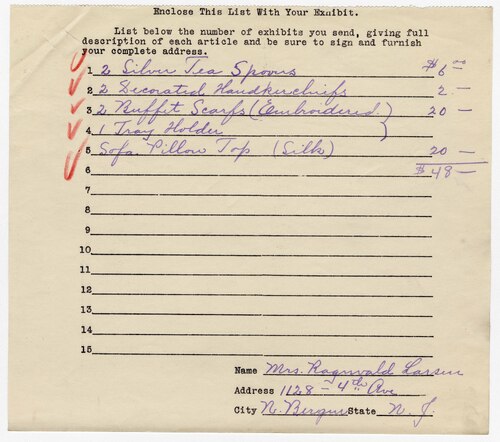 Enclose This List With Your Exhibit.
List below the number of exhibits you send, giving full
description of each article and be sure to sign and furnish
your complete address.
1 2 Silver Tea Spoons $6 00
2 2 Decorated Handkerchiefs 2 —
3 2 Buffet Scarfs (Embroidered) 20 —
4 1 Tray Holder }
5 Sofa Pillow Top (Silk) 20 —
6 $48 —
7
8
9
10
11
12
13
14
15
Name Mrs. Ragnvald Larsen
Address 1128 - 4th Ave
City N. Bergen State N. J.